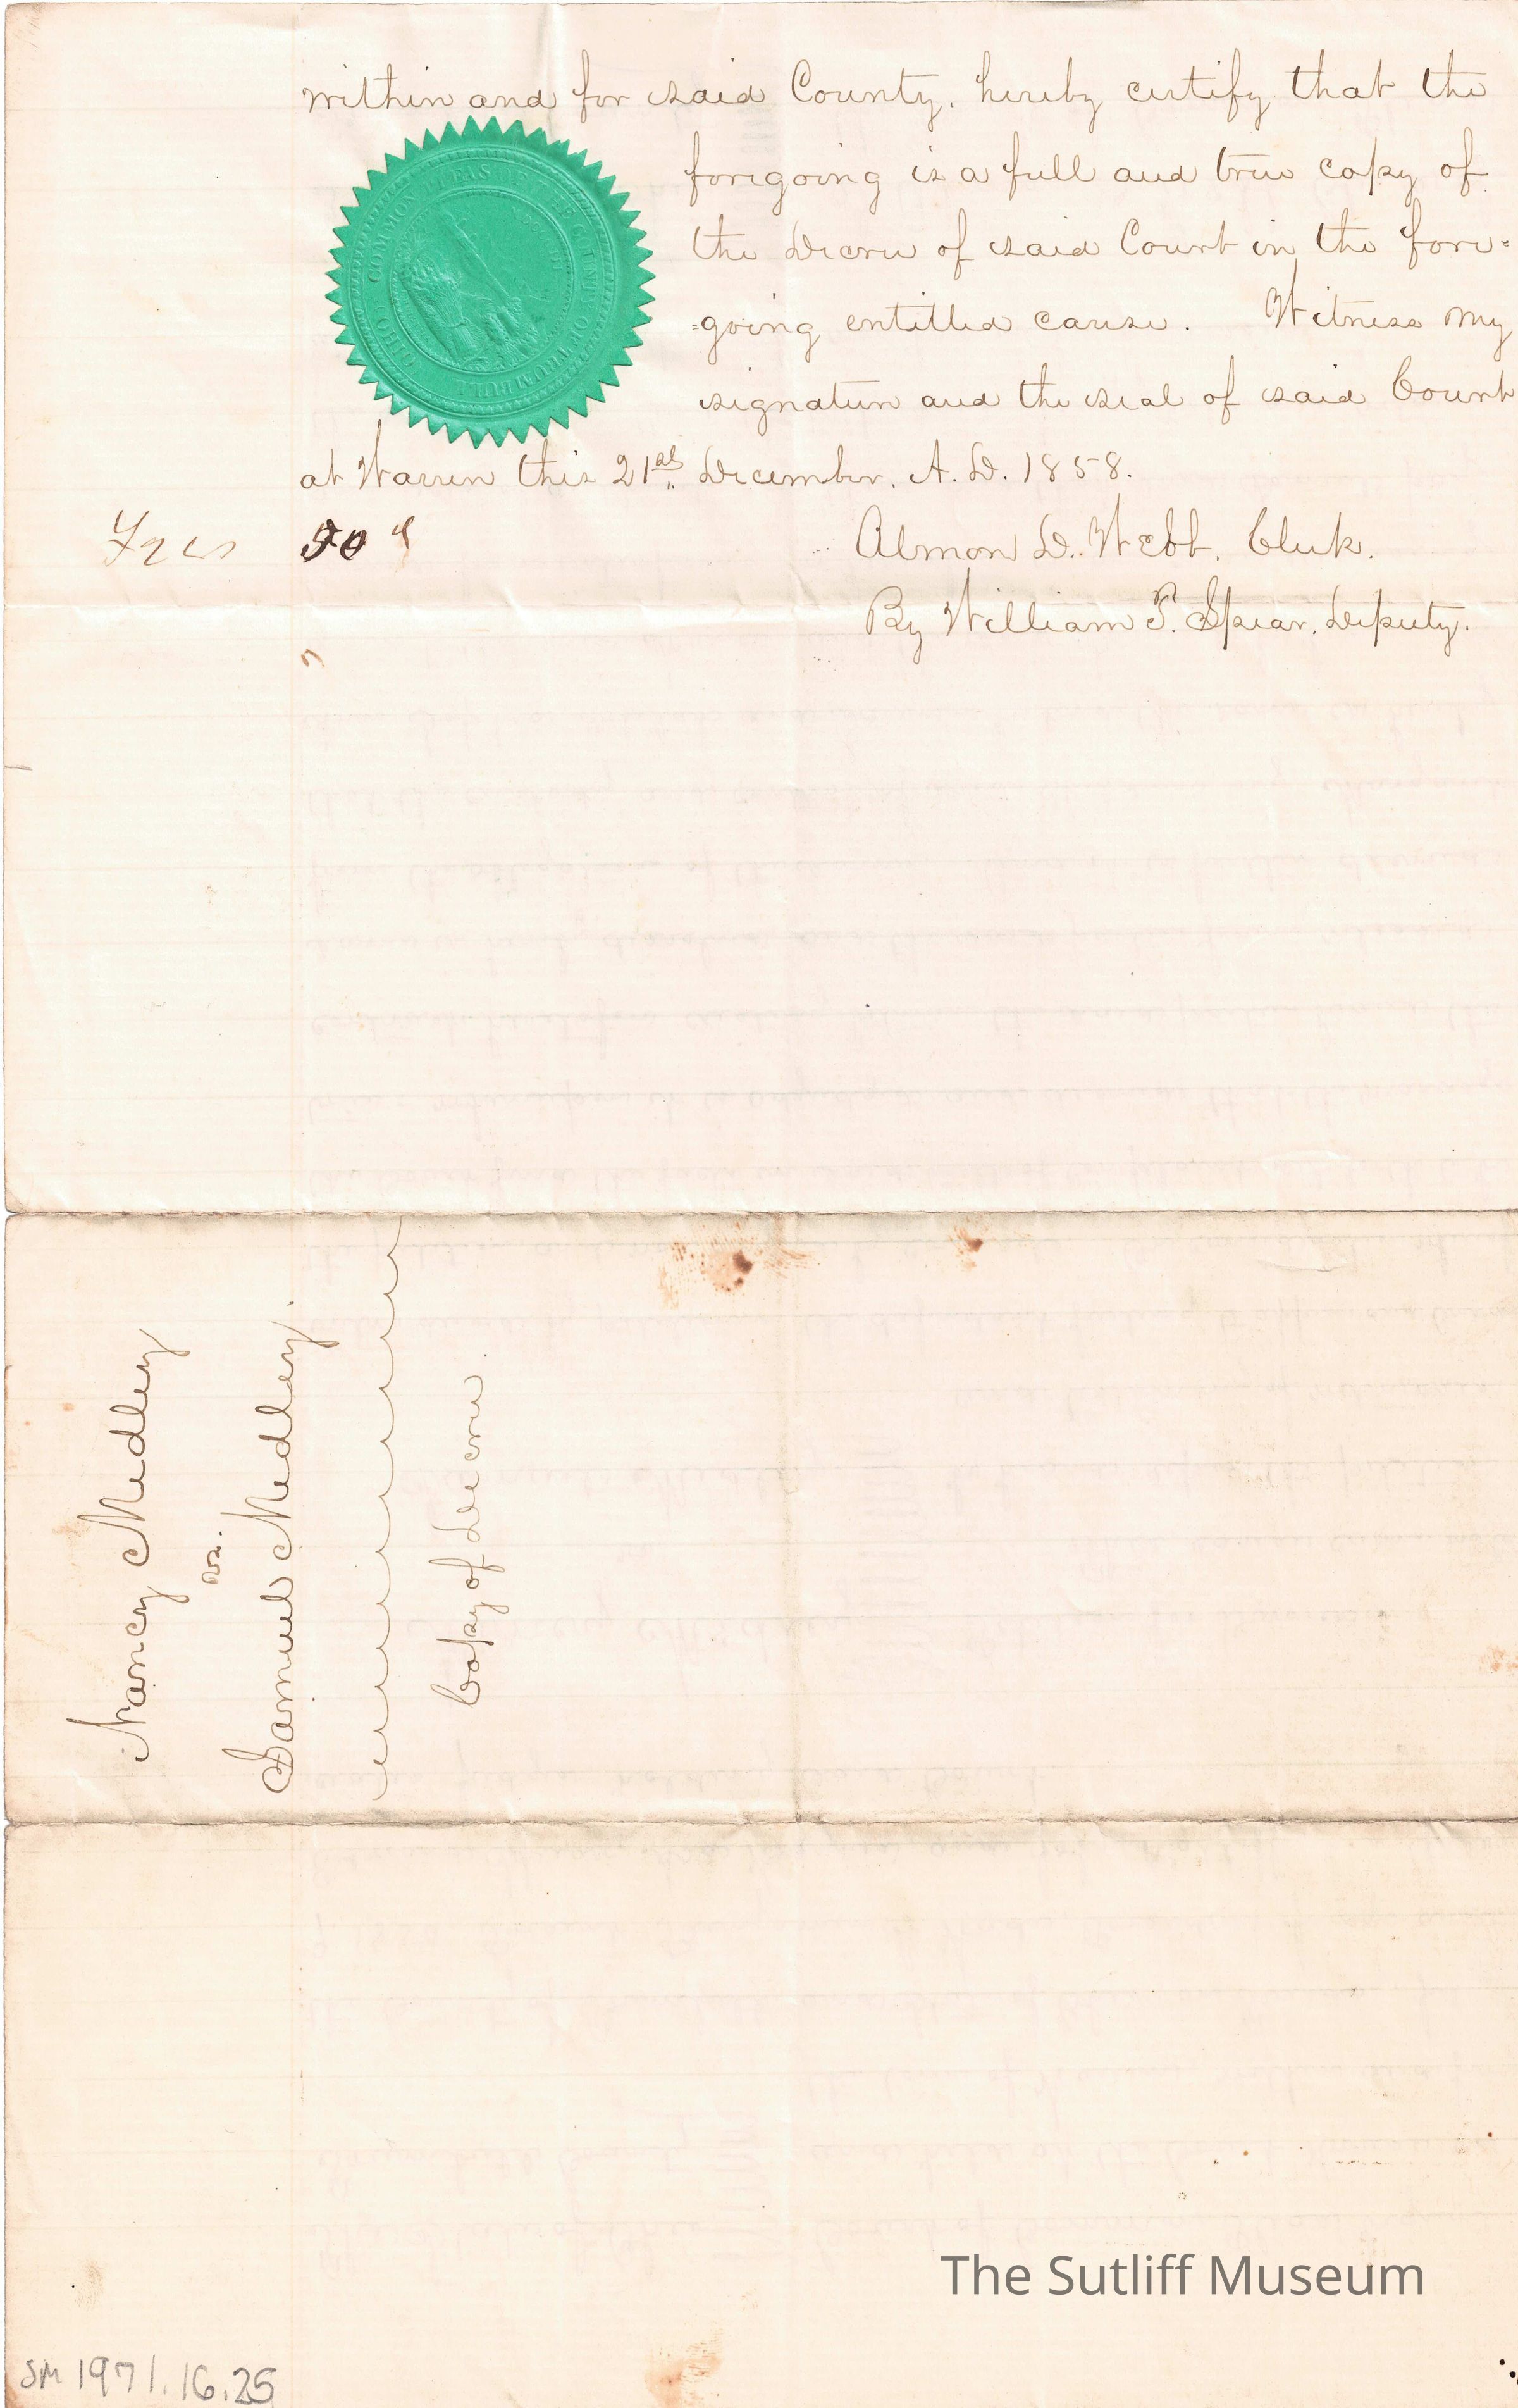 within and for said County, hereby certify that the
foregoing is a full and true copy of
the Decree of said Court in the fore=
=going entitled cause. Witness my
signature and the seal of said Court
at Warren this 21st December, A. D. 1858.
Fees 50 c
Almon D. Webb, Clerk.
By William T. Spear, Deputy.
COMMON PLEAS OF THE COUNTY OF TRUMBULL
OHIO
Nancy Medley
vs.
Samuel Medley.
Copy of Decree.
The Sutliff Museum
SM 1971.16.25